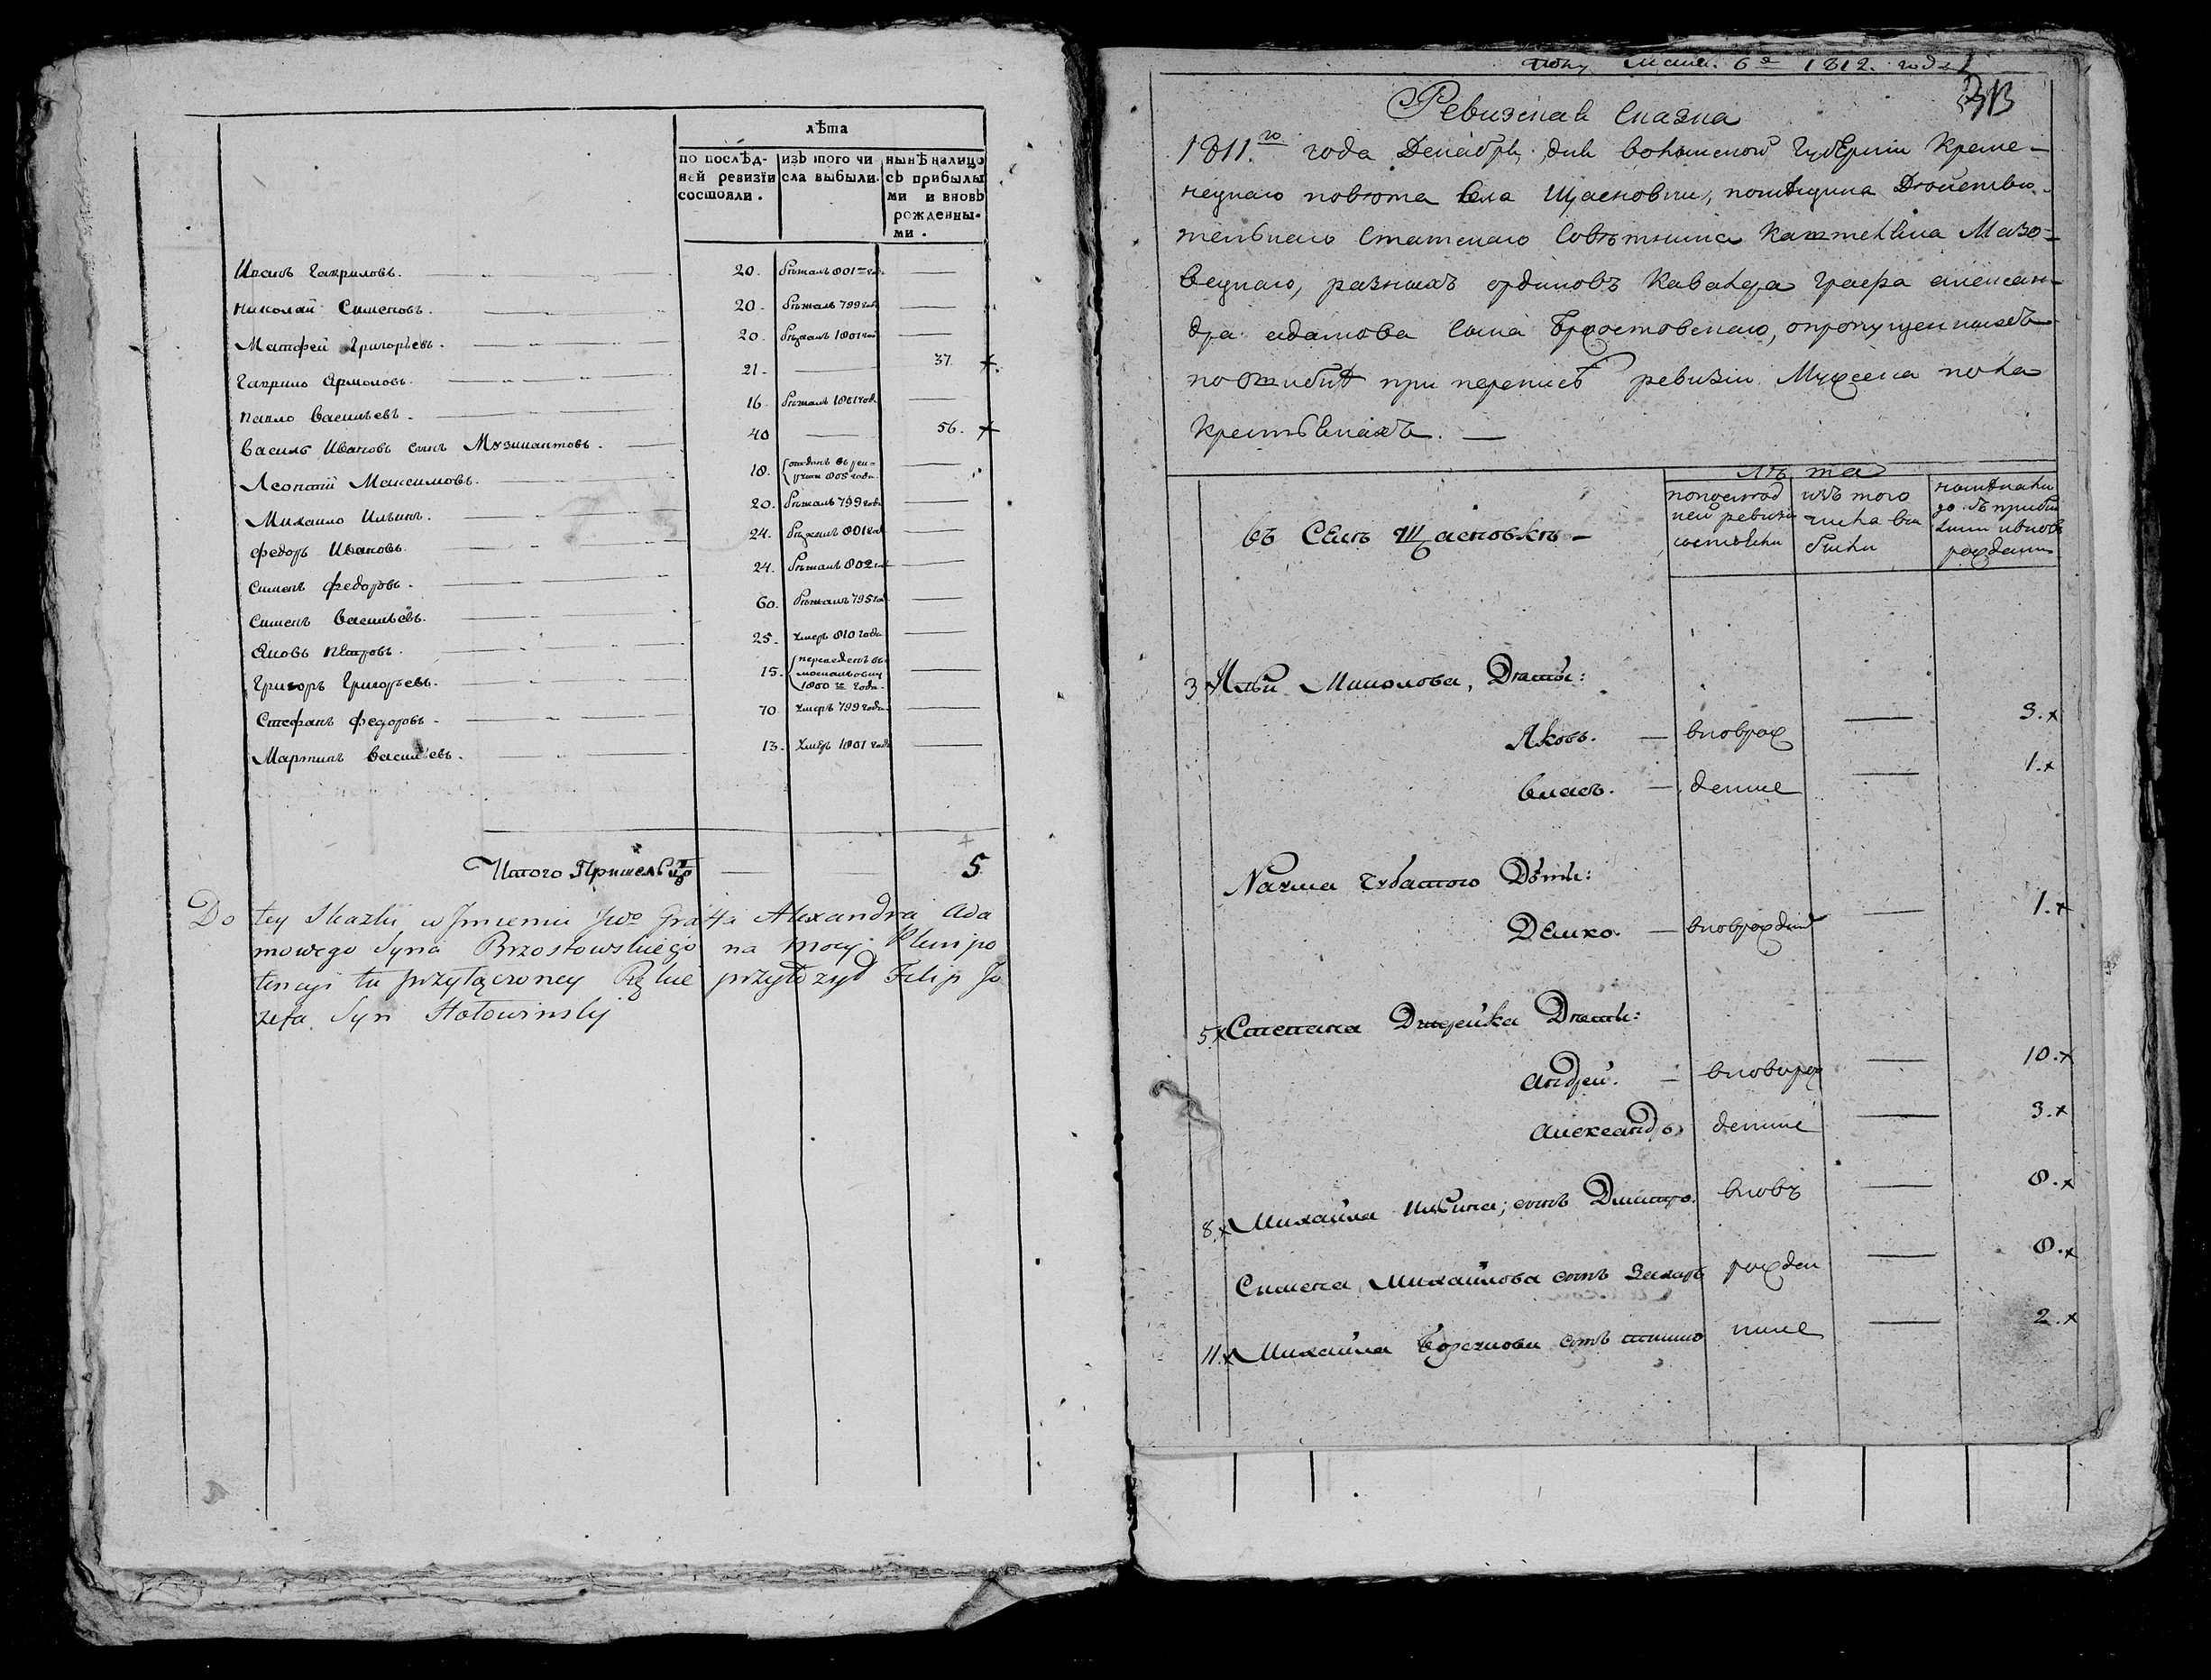 лѣта
по послѣд-
ней ревизїи
состояли.
изъ того чи
сла выбыли.
нынѣ налицо
съ прибылы
ми и вновь
рожденны-
ми.
Иванъ Гавриловъ. 20. бѣжалъ 801 года
Николай Сименовъ. 20. бѣжалъ 799 года
Матфей Григорьевъ. 20. бѣжалъ 1801 года
Гаврило Ярмоловъ. 21. 37. +
Павло Васильевъ. 16. бѣжалъ 1801 года
Василь Ивановъ сынъ Музикантовъ. 40 56. +
Леонтий Максимовъ. 18. отданъ въ рек-
руты 805 года.
Михайло Ильинъ. 20. бѣжалъ 799 года
Федоръ Ивановъ. 24. бѣжалъ 801 года
Сименъ Федоровъ. 24. бѣжалъ 802 года
Сименъ Васильевъ. 60. бѣжалъ 795 года
Яковъ Петровъ. 25. умеръ 810 года
Григоръ Григорьевъ. 15. переведенъ въ
1800 го года.
Стефанъ Федоровъ. 70 умеръ 799 года
Мартинъ Васильевъ. 13. умеръ 1801 года
Итого 5
Do tey Skazki w Jmieniu Jwo Graffa Alexandra Ada
mowego Syna Brzostowskiego na mocy Plenipo
tencyi tu przyłączoney Rękę przyłożył Filip Jo
zefa Syn Hołowinsky
6 го 1812. года
Ревизская Сказка
1811.го года Декабря дня Волынской Губерніи Креме-
нецкаго повѣта села Щасновки, помѣщика Дѣйстви-
тельнаго Статскаго Совѣтника Каштеляна Мазо-
вецкаго, разныхъ орденовъ Кавалера Графа Алексан-
дра Адамова сына Бржостовскаго, о пропущенныхъ
по ошибкѣ при переписѣ ревизіи Мужеска пола
крестьянахъ.
Лѣта
въ Селѣ Щасновкѣ
по послѣд
ней ревизи
состояли
изъ того
числа вы
были
рожденн
3.x Ильи Миколова, Дѣти:
Яковъ. вноврож 3.x
Власъ. денніе 1.x
Наума Чубатого Дѣти:
Демко. вноврожденй 1.x
5.x Степана Дѣти:
Андрей. вноврож 10.x
Александръ денніе 3.x
8.x Михайла Ильина; сынъ Дмитро. вновь 8.x
Симена Михайлова сынъ Захаръ рожден 8.x
11.x Михайла сынъ ніие 2.x